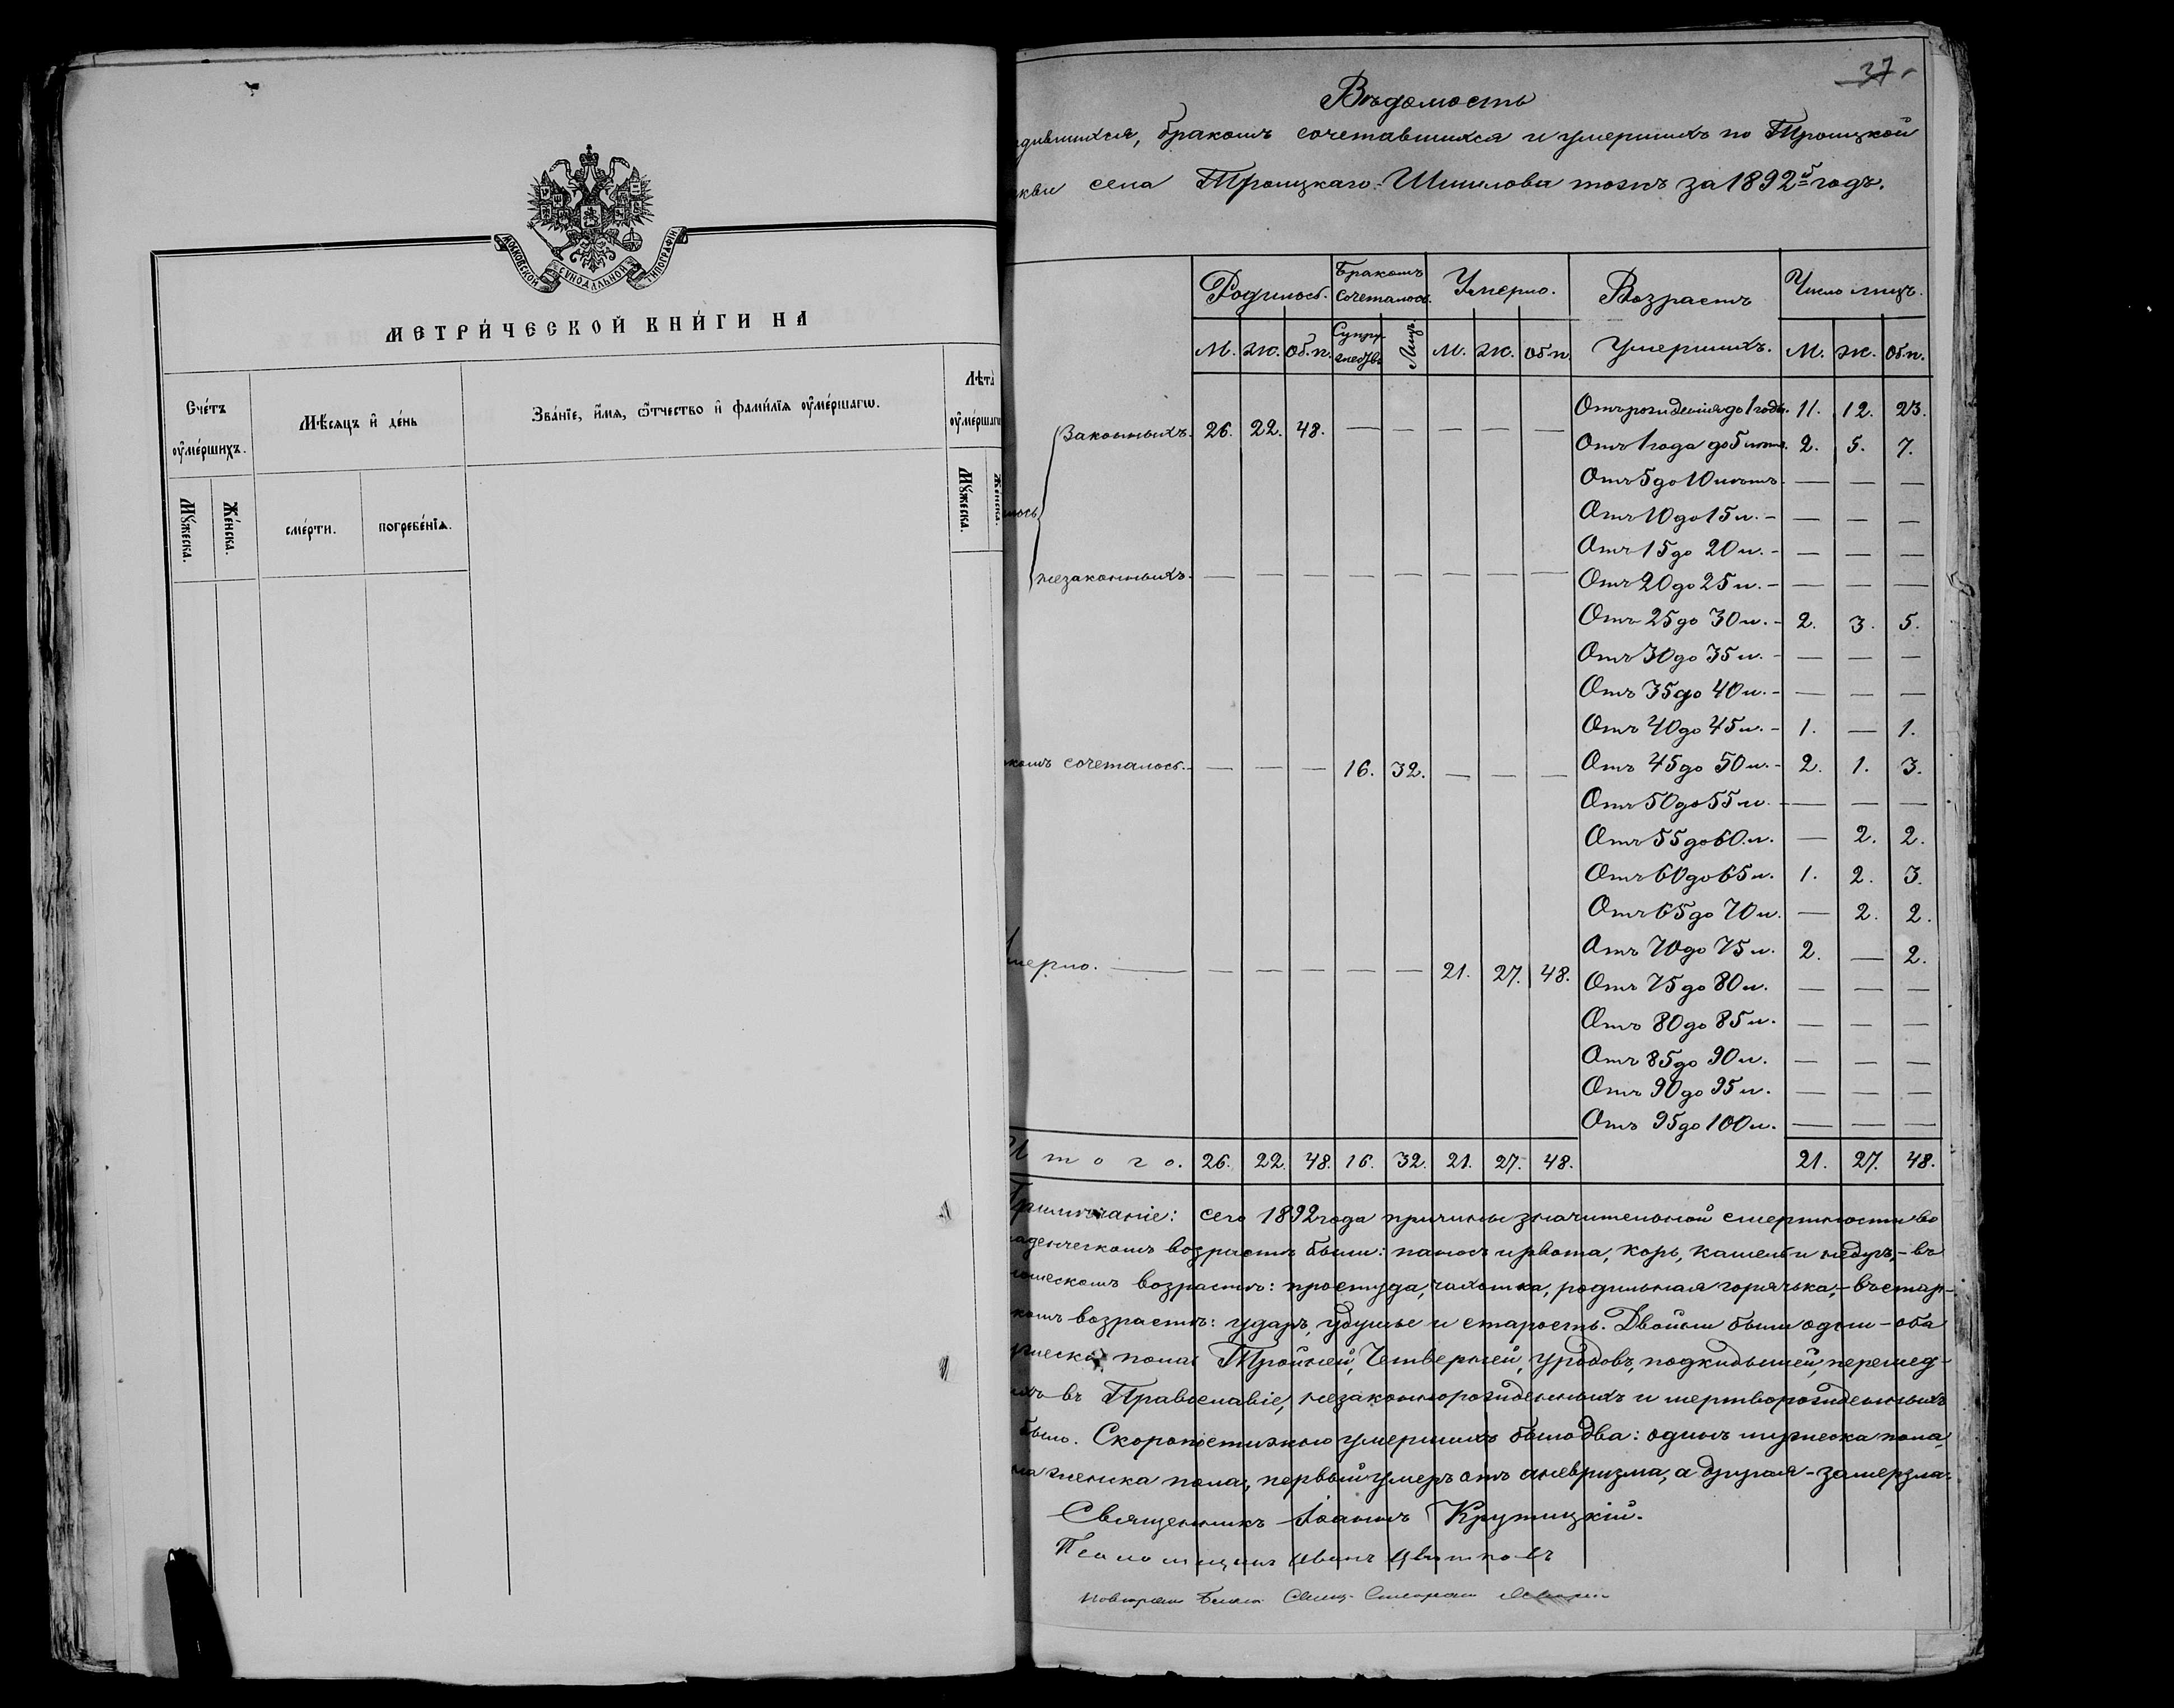 МОСКОВСКОЙ СѴНОДАЛЬНОЙ ТИПОГРАФІИ
МЕТРИ́ЧЕСКОЙ КНИ́ГИ НА
Сче́тъ ᲂу҆ме́ршихъ.
Мѣ́сяцъ и҆ де́нь
Зва́нїе, и҆́мѧ, ѿтчество и҆ фами́лїѧ ᲂу҆ме́ршагѡ.
Лѣта̀ ᲂу҆ме́ршаг
Мꙋ́жеска.
Же́нска.
сме́рти.
погребе́нїѧ.
Мꙋ́жеска.
Же́нска.
37
Вѣдомость
дившихся, бракомъ сочетавшихся и умершихъ по Троицкой
кви села Троицкаго-Шишлова тожъ за 1892й годъ.
Родилось. Бракомъ сочеталось. Умерло. Возрастъ умершихъ. Число лицъ.
М. Ж. Об.п. Супружествъ Лицъ. М. Ж. Об.п. М. Ж. Об.п.
Законныхъ. 26. 22. 48. — — — — —
лось
незаконныхъ. — — — — — — — —
комъ сочеталось. — — — 16. 32. — — —
мерло. — — — — — — 21. 27. 48.
Отъ рожденія до 1 года. 11. 12. 23.
Отъ 1 года до 5 лѣтъ. 2. 5. 7.
Отъ 5 до 10 лѣтъ. — — —
Отъ 10 до 15 л. — — —
Отъ 15 до 20 л. — — —
Отъ 20 до 25 л. — — —
Отъ 25 до 30 л. 2. 3. 5.
Отъ 30 до 35 л. — — —
Отъ 35 до 40 л. — — —
Отъ 40 до 45 л. 1. — 1.
Отъ 45 до 50 л. 2. 1. 3.
Отъ 50 до 55 л. — — —
Отъ 55 до 60 л. — 2. 2.
Отъ 60 до 65 л. 1. 2. 3.
Отъ 65 до 70 л. — 2. 2.
Отъ 70 до 75 л. 2. — 2.
Отъ 75 до 80 л. — — —
Отъ 80 до 85 л. — — —
Отъ 85 до 90 л. — — —
Отъ 90 до 95 л. — — —
Отъ 95 до 100 л. — — —
Итого. 26. 22. 48. 16. 32. 21. 27. 48. 21. 27. 48.
Примѣчаніе: сего 1892 года причины значительной смертности во
аденческомъ возрастѣ были: поносъ и рвота, корь, кашель и недугъ, - въ
ошескомъ возрастѣ: простуда, чахотка, родильная горячька, - въ стар-
комъ возрастѣ: ударъ, удушье и старость. Двойни были одни - оба
жеска пола. Тройней, Четверней, уродовъ, подкидышей, перешед-
ихъ въ Православіе, незаконнорожденныхъ и мертворожденныхъ
было. Скоропостижно умершихъ было два: одинъ мужеска пола,
на женска пола, первый умеръ отъ аневризма, а другая - замерзла.
Священникъ Іоаннъ Крутицкій.
Псаломщикъ Иванъ Цвѣтковъ